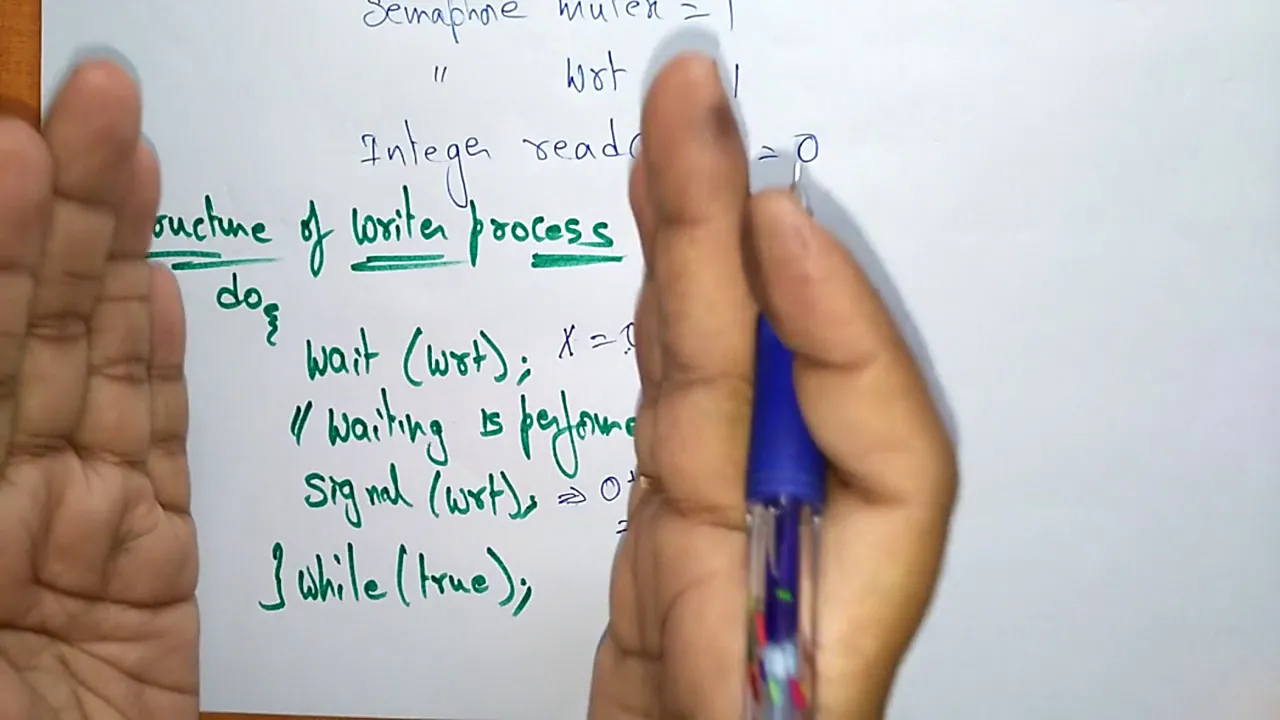 Semaphore mutex = 1
" wrt 1
Integer read = 0
ructure of writer process
do{
wait (wrt); X = 0
// waiting is performe
signal (wrt); => 0+
=
} while (true);